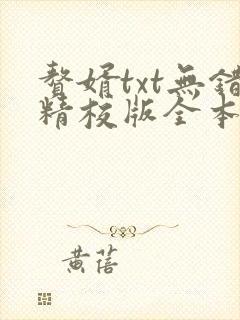 贅婿txt無錯
精校版全本
黃蓓